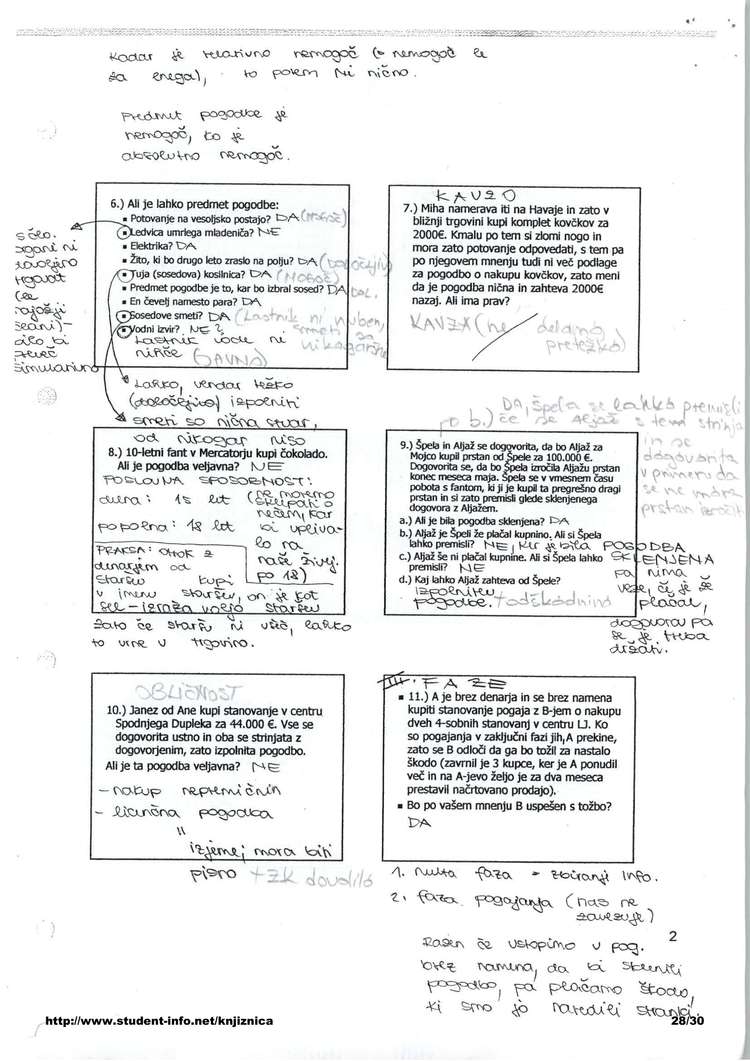 Kadar je relativno nemogoč (= nemogoč le
za enega), to potem ni nično.
Predmet pogodbe je
nemogoč, ko je
absolutno nemogoč.
6.) Ali je lahko predmet pogodbe:
▪ Potovanje na vesoljsko postajo? DA (MOGOČ)
▪ Ledvica umrlega mladeniča? NE
▪ Elektrika? DA
▪ Žito, ki bo drugo leto zraslo na polju? DA (DOLOČLJIV)
▪ Tuja (sosedova) kosilnica? DA (MOGOČ)
▪ Predmet pogodbe je to, kar bo izbral sosed? DA DOL.
▪ En čevelj namesto para? DA
▪ Sosedove smeti? DA (Lastnik ni noben,
smeti so
nikogaršne
▪ Vodni izvir? NE?
Lastnik vode ni
nihče (JAVNO)
Lahko, vendar težko
(določljivo) izpolniti
smeti so nična stvar,
od nikogar niso
KAVZO
7.) Miha namerava iti na Havaje in zato v
bližnji trgovini kupi komplet kovčkov za
2000€. Kmalu po tem si zlomi nogo in
mora zato potovanje odpovedati, s tem pa
po njegovem mnenju tudi ni več podlage
za pogodbo o nakupu kovčkov, zato meni
da je pogodba nična in zahteva 2000€
nazaj. Ali ima prav?
KAVZA (ne delamo,
pretežko)
8.) 10-letni fant v Mercatorju kupi čokolado.
Ali je pogodba veljavna? NE
POSLOVNA SPOSOBNOST:
delna: 15 let (ne moremo
sklepati o
nečem, kar
popolna: 18 let bi vpliva-
lo na
naše življ.
po 18)
PRAKSA: otrok z
denarjem od
staršev kupi
v imenu staršev, on je kot
sel - izraža voljo staršev
zato če staršu ni všeč, lahko
to vrne v trgovino.
DA, Špela se lahko premisli
po b.) če se Aljaž s tem strinja
in se
dogovorita
v primeru da
se ne mora
prstan izročit
9.) Špela in Aljaž se dogovorita, da bo Aljaž za
Mojco kupil prstan od Špele za 100.000 €.
Dogovorita se, da bo Špela izročila Aljažu prstan
konec meseca maja. Špela se v vmesnem času
pobota s fantom, ki ji je kupil ta pregrešno dragi
prstan in si zato premisli glede sklenjenega
dogovora z Aljažem.
a.) Ali je bila pogodba sklenjena? DA
b.) Aljaž je Špeli že plačal kupnino. Ali si Špela
lahko premisli? NE, ker je bila POGODBA
SKLENJENA
c.) Aljaž še ni plačal kupnine. Ali si Špela lahko
premisli? NE
pa nima
veze, če je že
plačal,
dogovora pa
se je treba
držati.
d.) Kaj lahko Aljaž zahteva od Špele?
izpolnitev
pogodbe. + odškodnino
OBLIČNOST
10.) Janez od Ane kupi stanovanje v centru
Spodnjega Dupleka za 44.000 €. Vse se
dogovorita ustno in oba se strinjata z
dogovorjenim, zato izpolnita pogodbo.
Ali je ta pogodba veljavna? NE
- nakup nepremičnin
- pogodba
izjeme, mora biti
pisno + ZK dovolilo
III. FAZE
▪ 11.) A je brez denarja in se brez namena
kupiti stanovanje pogaja z B-jem o nakupu
dveh 4-sobnih stanovanj v centru LJ. Ko
so pogajanja v zaključni fazi jih,A prekine,
zato se B odloči da ga bo tožil za nastalo
škodo (zavrnil je 3 kupce, ker je A ponudil
več in na A-jevo željo je za dva meseca
prestavil načrtovano prodajo).
▪ Bo po vašem mnenju B uspešen s tožbo?
DA
1. nulta faza = zbiranje info.
2. faza pogajanja (nas ne
zavezuje)
Razen če vstopimo v pog.
brez namena, da bi sklenili
pogodbo, pa plačamo škodo,
ki smo jo naredili stranki.
2
http://www.student-info.net/knjiznica
28/30